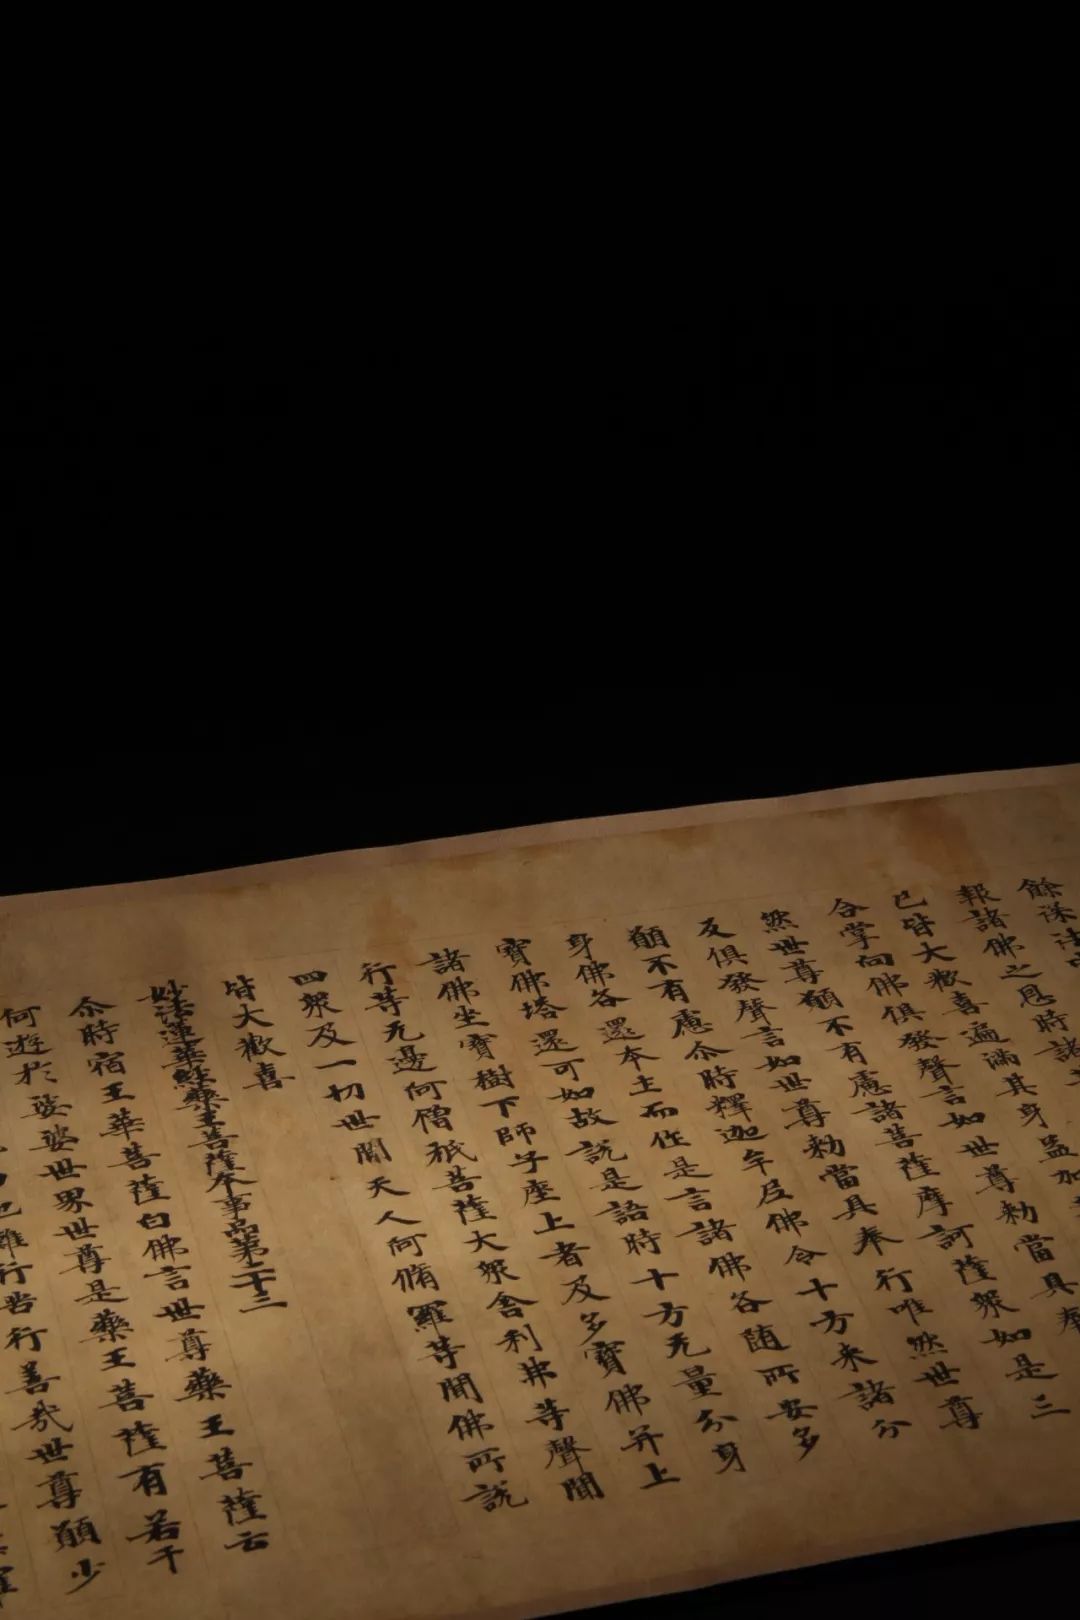 餘深法中
報諸佛之恩時諸
已皆大歡喜遍滿其身益加
合掌向佛俱發聲言如世尊勑當具奉
然世尊願不有慮諸菩薩摩訶薩衆如是三
及俱發聲言如世尊勑當具奉行唯然世尊
願不有慮尒時釋迦牟尼佛令十方来諸分
身佛各還本土而作是言諸佛各随所安多
寶佛塔還可如故說是語時十方无量分身
諸佛坐寶樹下師子座上者及多寶佛并上
行等无邊阿僧祇菩薩大衆舍利弗等聲聞
四衆及一切世間天人阿脩羅等聞佛所說
皆大歡喜
妙法蓮華經藥王菩薩本事品第二十三
尒時宿王華菩薩白佛言世尊藥王菩薩云
何遊於娑婆世界世尊是藥王菩薩有若干
難行苦行善哉世尊願少